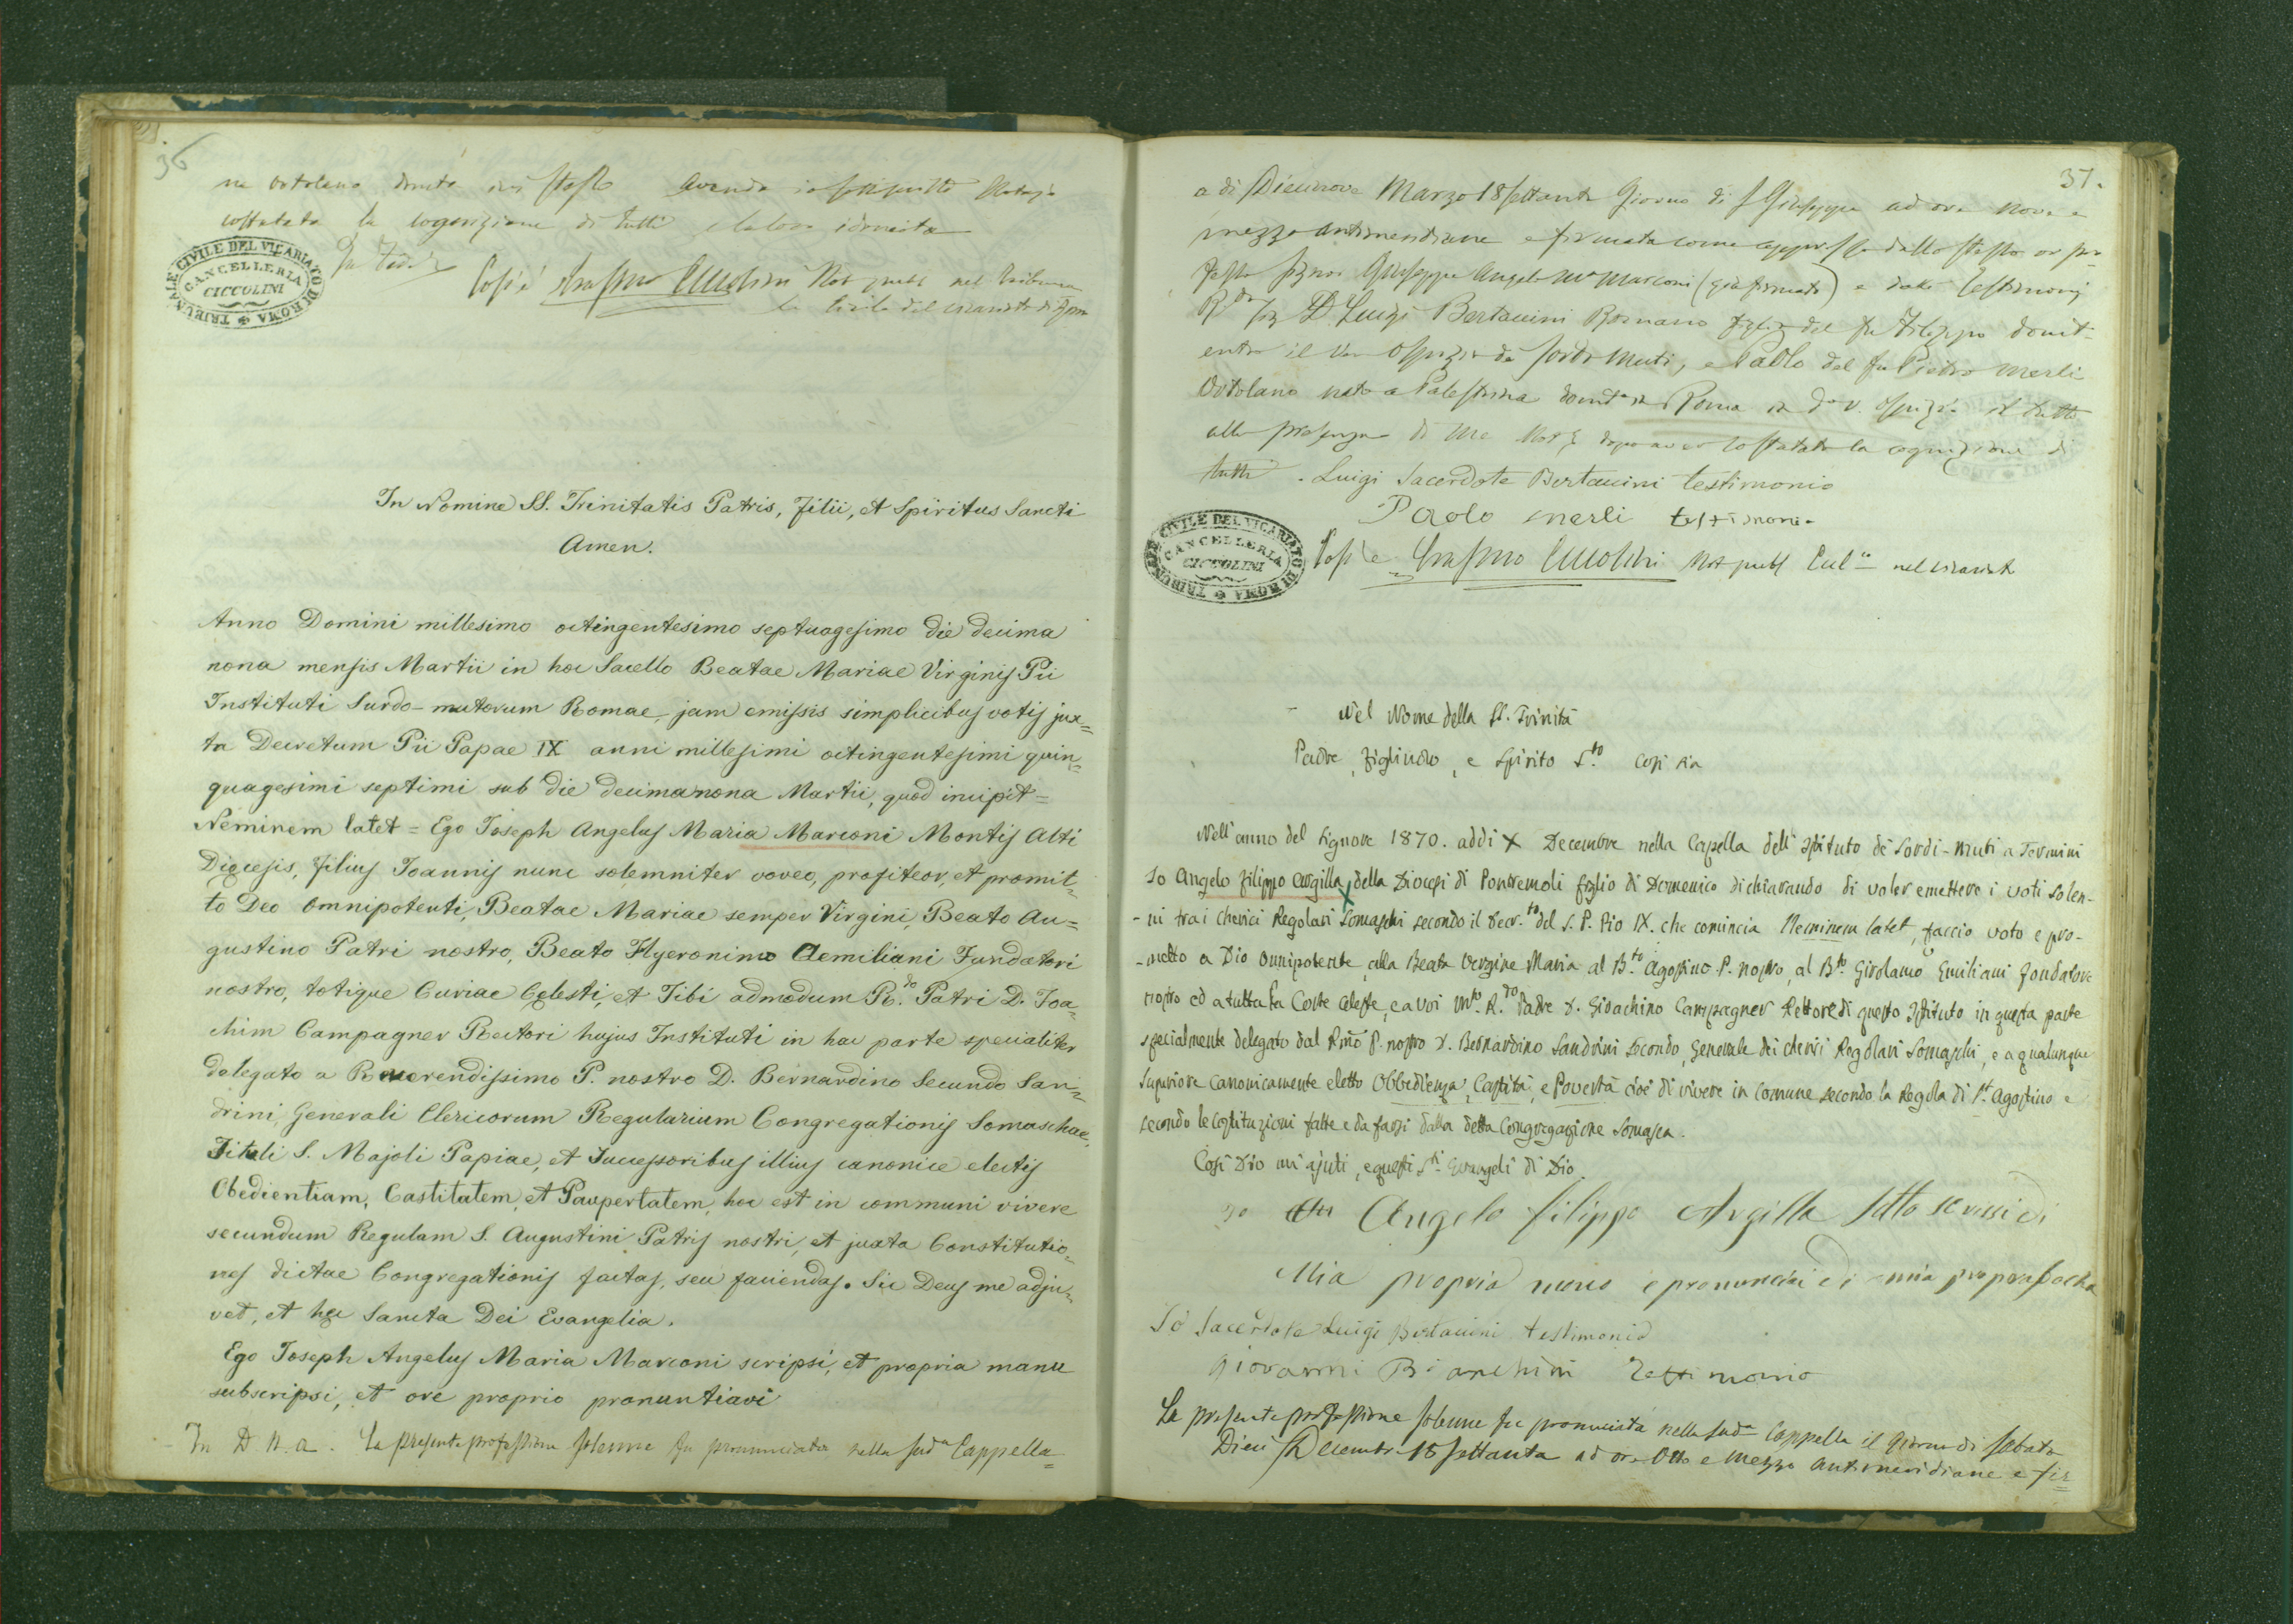 36
ne ortolano domto ivi stesso avendo io sottoscritto Notajo
costatata la cognizione di tutti e la loro idoneità
In Fede
TRIBUNALE CIVILE DEL VICARIATO DI ROMA
CANCELLERIA
CICCOLINI
Così è Erasmo Ciccolini Not pubb nel Tribuna
le Civile del Vicariato di Roma
In Nomine SS. Trinitatis Patris, Filii, et Spiritus Sancti
Amen.
Anno Domini millesimo octingentesimo septuagesimo die decima
nona mensis Martii in hoc Sacello Beatae Mariae Virginis Pii
Instituti Surdo-mutorum Romae, jam emissis simplicibus votis jux=
ta Decretum Pii Papae IX anni millesimi octingentesimi quin=
quagesimi septimi sub die decimanona Martii, quod incipit=
Neminem latet = Ego Joseph Angelus Maria Marconi Montis Alti
Diœcesis, filius Joannis nunc solemniter voveo, profiteor, et promit=
to Deo Omnipotenti, Beatae Mariae semper Virgini, Beato Au=
gustino Patri nostro, Beato Hyeronimo Aemiliani Fundatori
nostro, totique Curiae Cœlesti, et Tibi admodum R.do Patri D. Joa=
chim Campagner Rectori hujus Instituti in hac parte specialiter
delegato a Reverendissimo P. nostro D. Bernardino Secundo San=
drini, Generali Clericorum Regularium Congregationis Somaschae,
Tituli S. Majoli Papiae, et Successoribus illius canonice electis
Obedientiam, Castitatem, et Paupertatem, hoc est in communi vivere
secundum Regulam S. Augustini Patris nostri, et juxta Constitutio=
nes dictae Congregationis factas, seu faciendas. Sic Deus me adju=
vet, et hæc Sancta Dei Evangelia.
Ego Joseph Angelus Maria Marconi scripsi, et propria manu
subscripsi, et ore proprio pronuntiavi
In D. N. a. La presente professione solenne fu pronunciata nella sudª Cappella=
37.
a dì Diecinove Marzo 18settanta Giorno di S Giuseppe ad ore nove e
mezzo antimeridiane e firmata come appresso dallo stesso or pro
fesso signor Giuseppe Angelo Mª Marconi (già firmato) e dai Testimonj
Rdo Sig D. Luigi Bertaccini Romano figlio del fu Filippo domit-
entro il Ven Ospizio de Sordo Muti, e Paolo del fu Pietro Merli
Ortolano nato a Palestrina domto in Roma in do v. Ospizio il tutto
alla presenza di me Not dopo aver costatata la cognizione di
tutti. Luigi Sacerdote Bertaccini testimonio
Paolo merli testimonio
TRIBUNALE CIVILE DEL VICARIATO DI ROMA
CANCELLERIA
CICCOLINI
Così è Erasmo Ciccolini Not pubb nel Vicariat
Nel Nome della SS. Trinità
Padre, Figliuolo, e Spirito S.to Così sia
Nell'anno del Signore 1870. addì X Decembre nella Capella dell'Istituto de' Sordi-Muti a Termini
Io Angelo Filippo Argilla, della Diocesi di Pontremoli figlio di Domenico dichiarando di voler emettere i voti solen-
-ni tra i Cherici Regolari Somaschi secondo il Decr.to del S. P. Pio IX. che comincia Neminem latet, faccio voto e pro-
-metto a Dio Onnipotente, alla Beata Vergine Maria al B.to Agostino P. nostro, al B.to Girolamo Emiliani Fondatore
nostro ed a tutta la Corte Celeste, e a voi M.to R.do Padre D. Gioachino Campagner Rettore di questo Istituto in questa parte
specialmente delegato dal Rmo P. nostro D. Bernardino Sandrini Secondo, Generale dei Cherici Regolari Somaschi, e a qualunque
Superiore canonicamente eletto Obbedienza, Castità, e Povertà cioè di vivere in comune secondo la Regola di S. Agostino e
secondo le Costituzioni fatte e da farsi dalla detta Congregazione Somasca.
Così Dio mi ajuti, e questi S.ti Evangeli di Dio.
Io Angelo filippo Argilla sotto scrissi di
Mia propria mano e pronunciai di mia propria bocha
Io Sacerdote Luigi Bertaccini testimonio
Giovanni Bianchini Testimonio
La presente professione solenne fu pronunciata nella sudª Cappella il giorno di Sabato
Dieci Decembre 18settanta ad ore Otto e mezzo antimeridiane e fir=